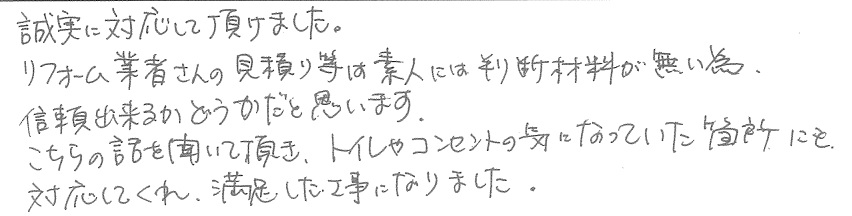 誠実に対応して頂けました。
リフォーム業者さんの見積り等は素人には判断材料が無い為、
信頼出来るかどうかだと思います。
こちらの話を聞いて頂き、トイレやコンセントの気になっていた箇所にも
対応してくれ、満足した工事になりました。